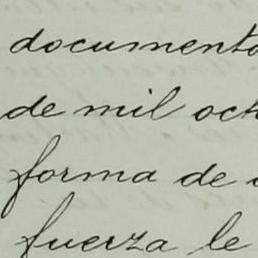 documento
de mil och
forma de
fuerza le